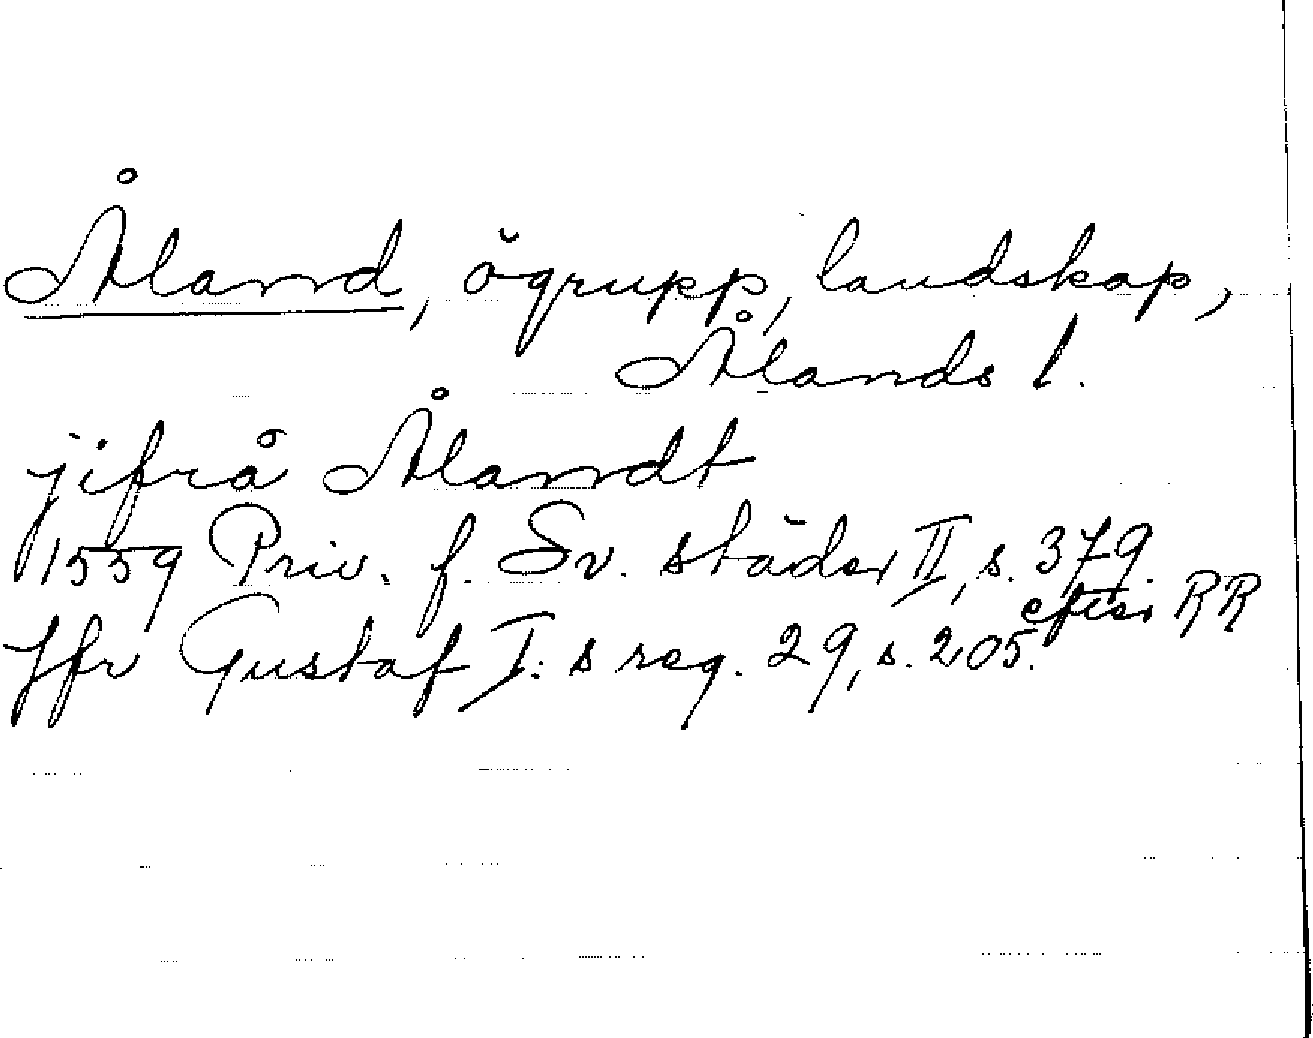 Åland, ögrupp, landskap,
Ålands l.
jifrå Ålandt
1559 Priv. f. Sv. städer II, s. 379.
efter RR
Jfr Gustaf I:s reg. 29, s. 205.